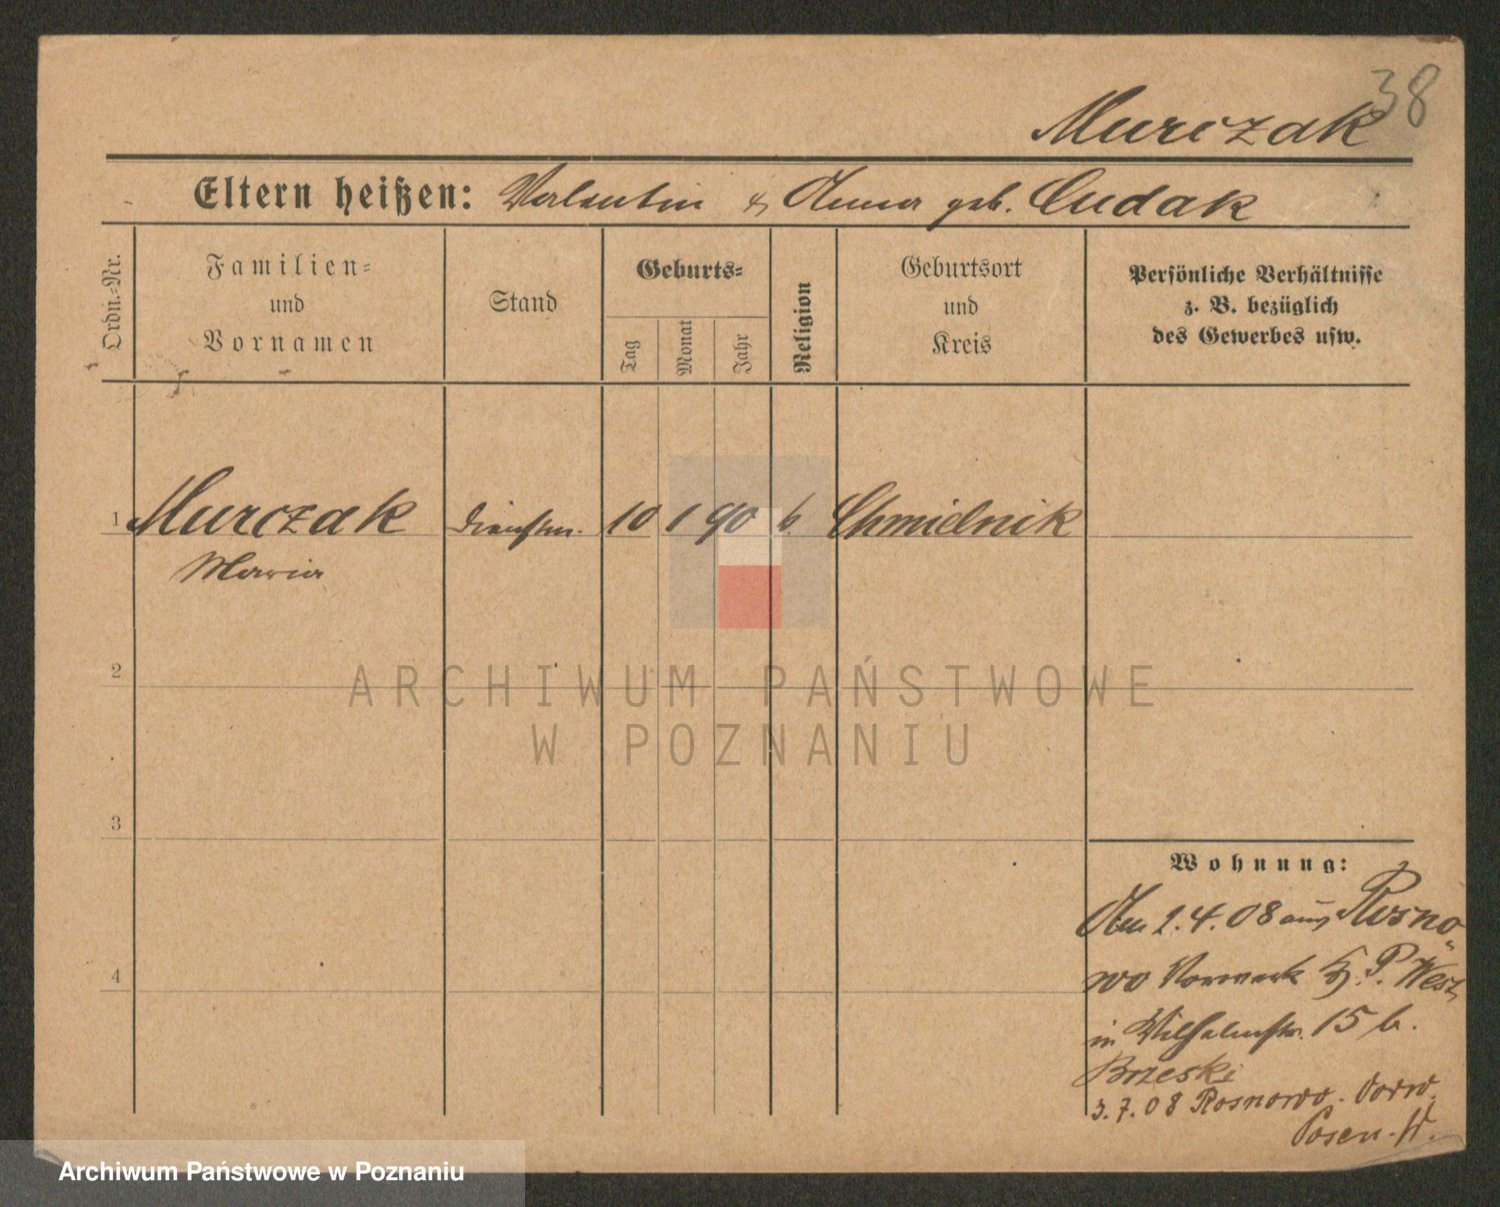 38
Murczak
Eltern heißen: Valentin & Anna geb. Cudak
Ordn.-Nr.
Familien-
und
Vornamen
Stand
Geburts-
Tag
Monat
Jahr
Religion
Geburtsort
und
Kreis
Persönliche Verhältnisse
z. B. bezüglich
des Gewerbes usw.
1 Murczak Dienstm. 10 1 90 k. Chmielnik
Maria
2
3
4
Wohnung:
Am 2.4.08 aus Rosno
wo Vorwerk Kr. P. West
in Wilhelmstr. 15 b.
Brzeski
3.7.08 Rosnowo. Vorw.
Posen. W.
ARCHIWUM PAŃSTWOWE
W POZNANIU
Archiwum Państwowe w Poznaniu